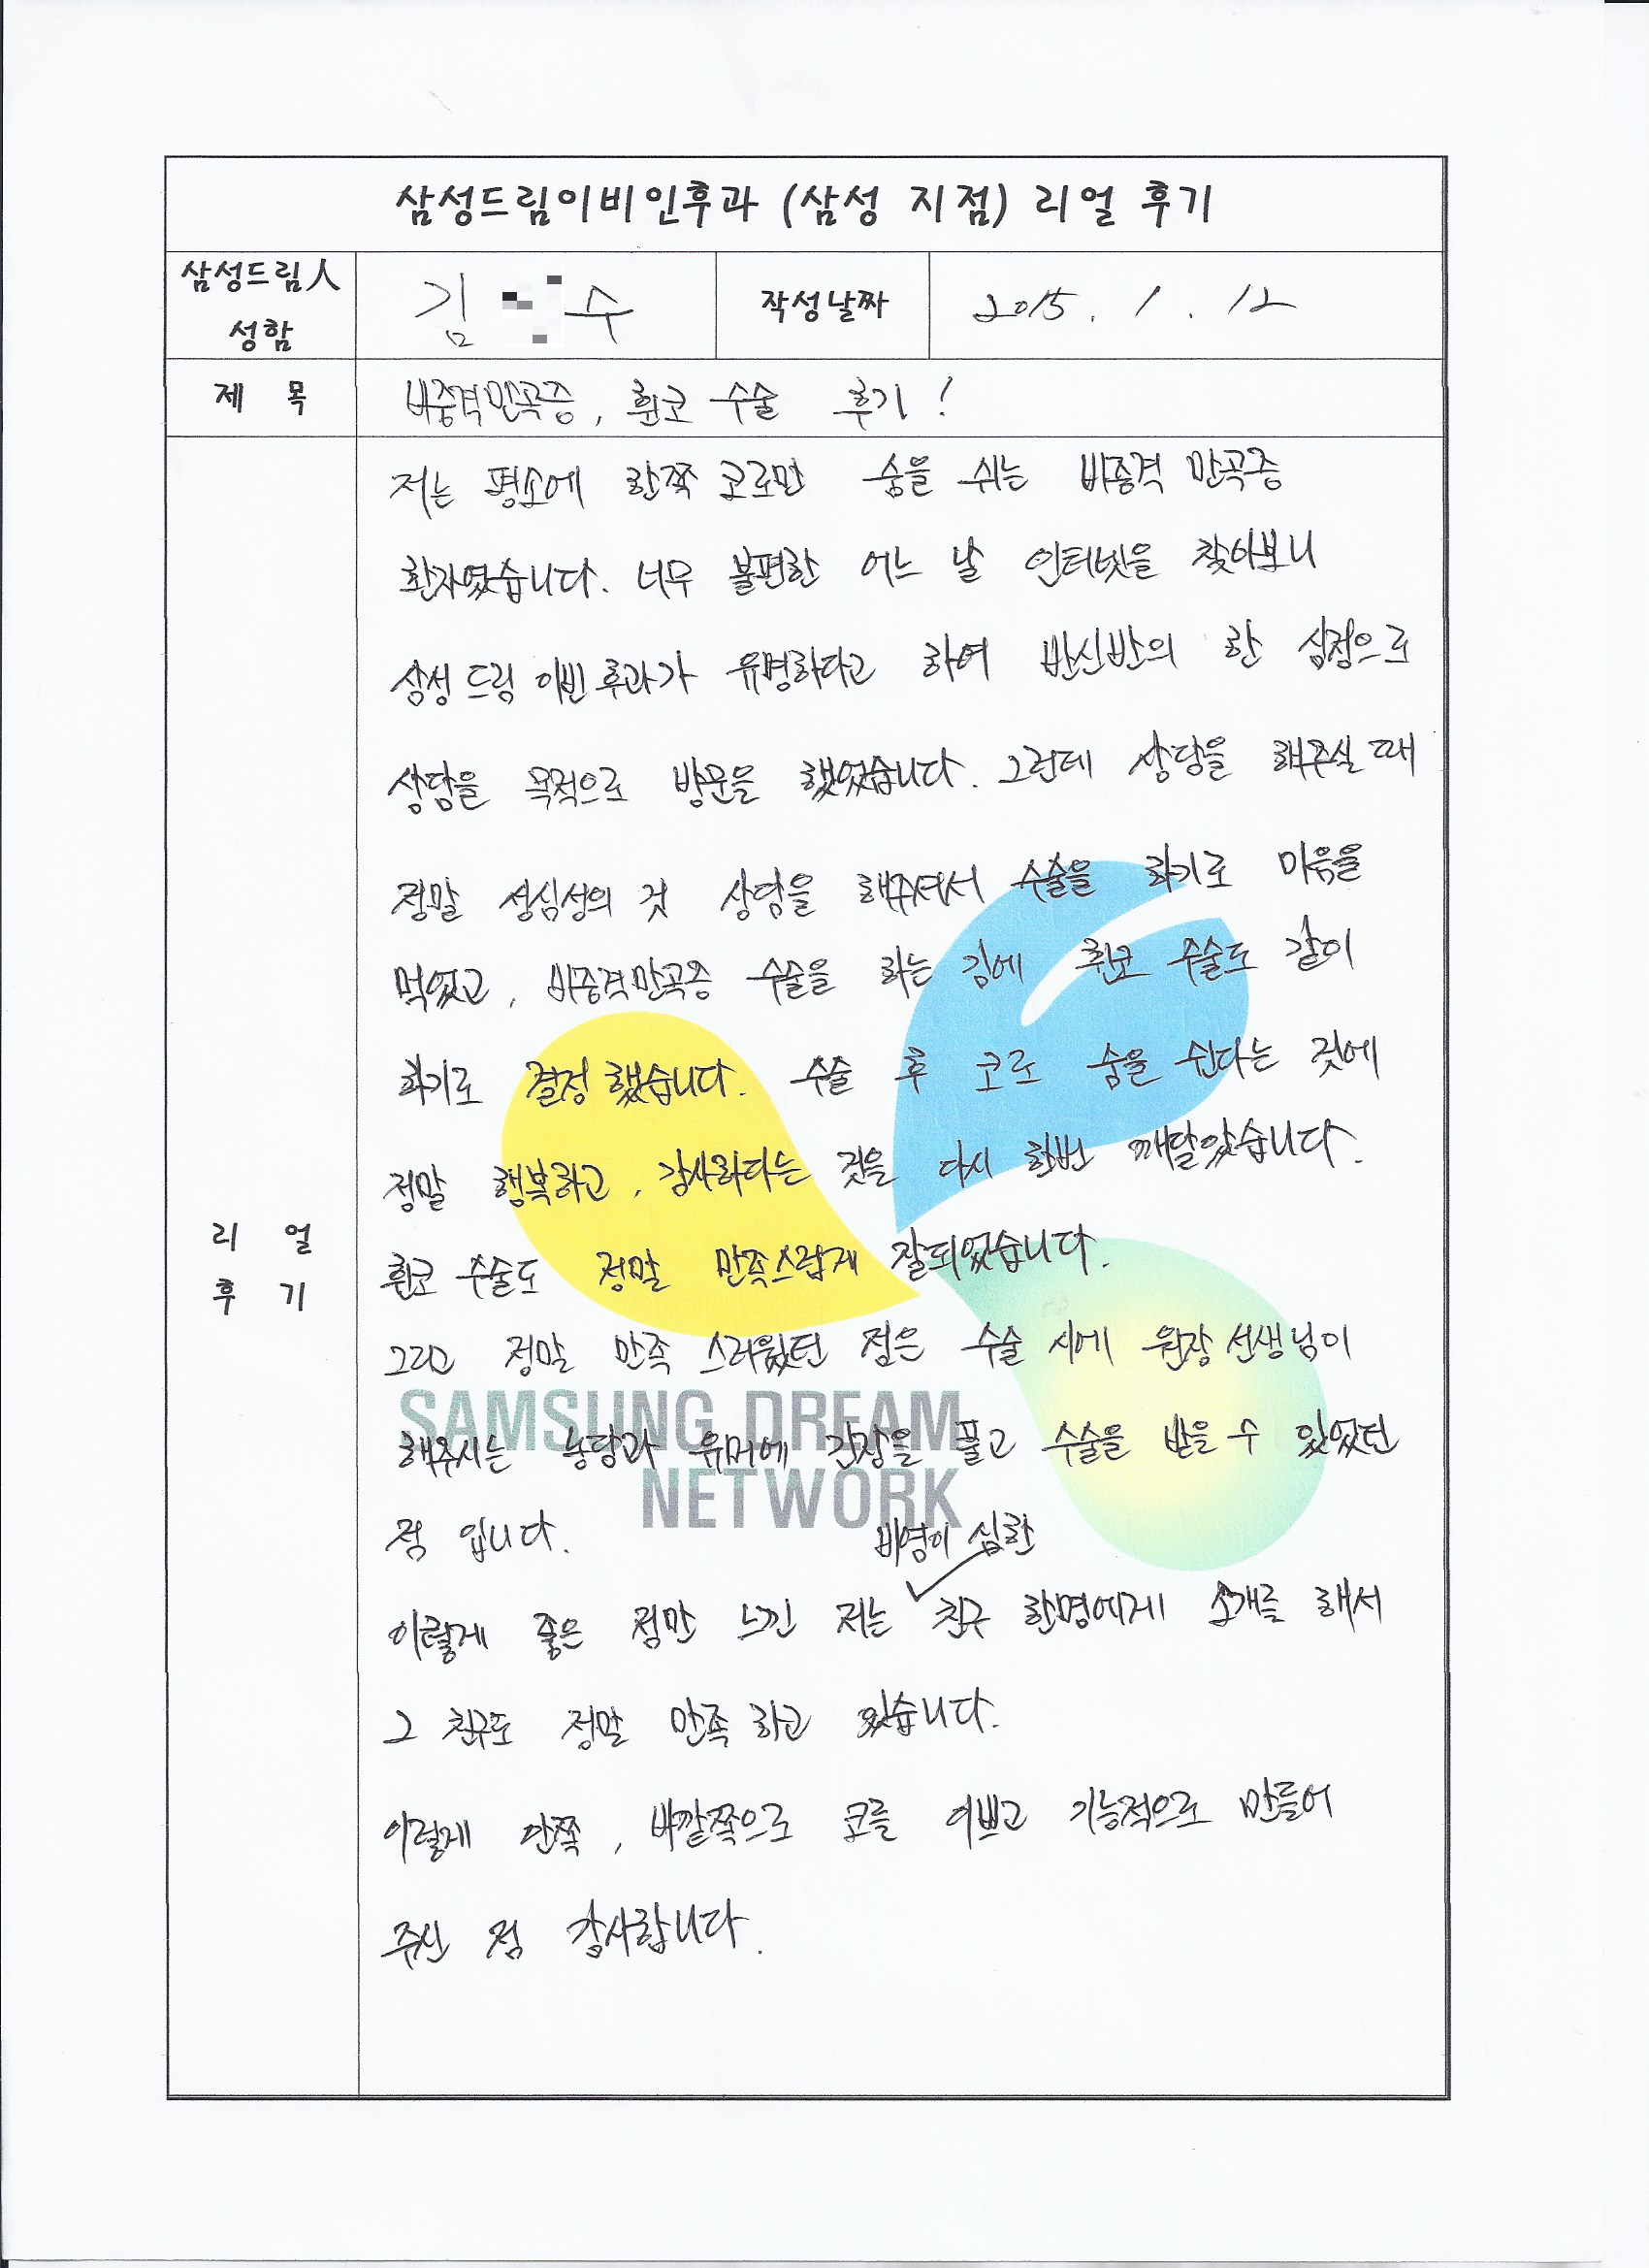 삼성드림이비인후과 (삼성 지점) 리얼 후기
삼성드림人
성함
김 수
작성날짜
2015. 1. 12
제 목
비중격만곡증, 휜코 수술 후기!
저는 평소에 한쪽 코로만 숨을 쉬는 비중격 만곡증
환자였습니다. 너무 불편한 어느 날 인터넷을 찾아보니
삼성드림 이빈후과가 유명하다고 하여 반신반의 한 심정으로
상담을 목적으로 방문을 했었습니다. 그런데 상담을 해주실 때
정말 성심성의 것 상담을 해주셔서 수술을 하기로 마음을
먹었고, 비중격만곡증 수술을 하는 김에 휜코 수술도 같이
하기로 결정 했습니다. 수술 후 코로 숨을 쉰다는 것에
정말 행복하고, 감사하다는 것을 다시 한번 깨달았습니다.
휜코 수술도 정말 만족스럽게 잘되었습니다.
그리고 정말 만족 스러웠던 점은 수술 시에 원장선생님이
SAMSUNG DREAM
해주시는 농담과 유머에 긴장을 풀고 수술을 받을 수 있었던
NETWORK
점 입니다.
비염이 심한
이렇게 좋은 점만 느낀 저는 친구 한명에게 소개를 해서
그 친구도 정말 만족 하고 있습니다.
리 얼
후 기
이렇게 안쪽, 바깥쪽으로 코를 이쁘고 기능적으로 만들어
주신 점 감사합니다.